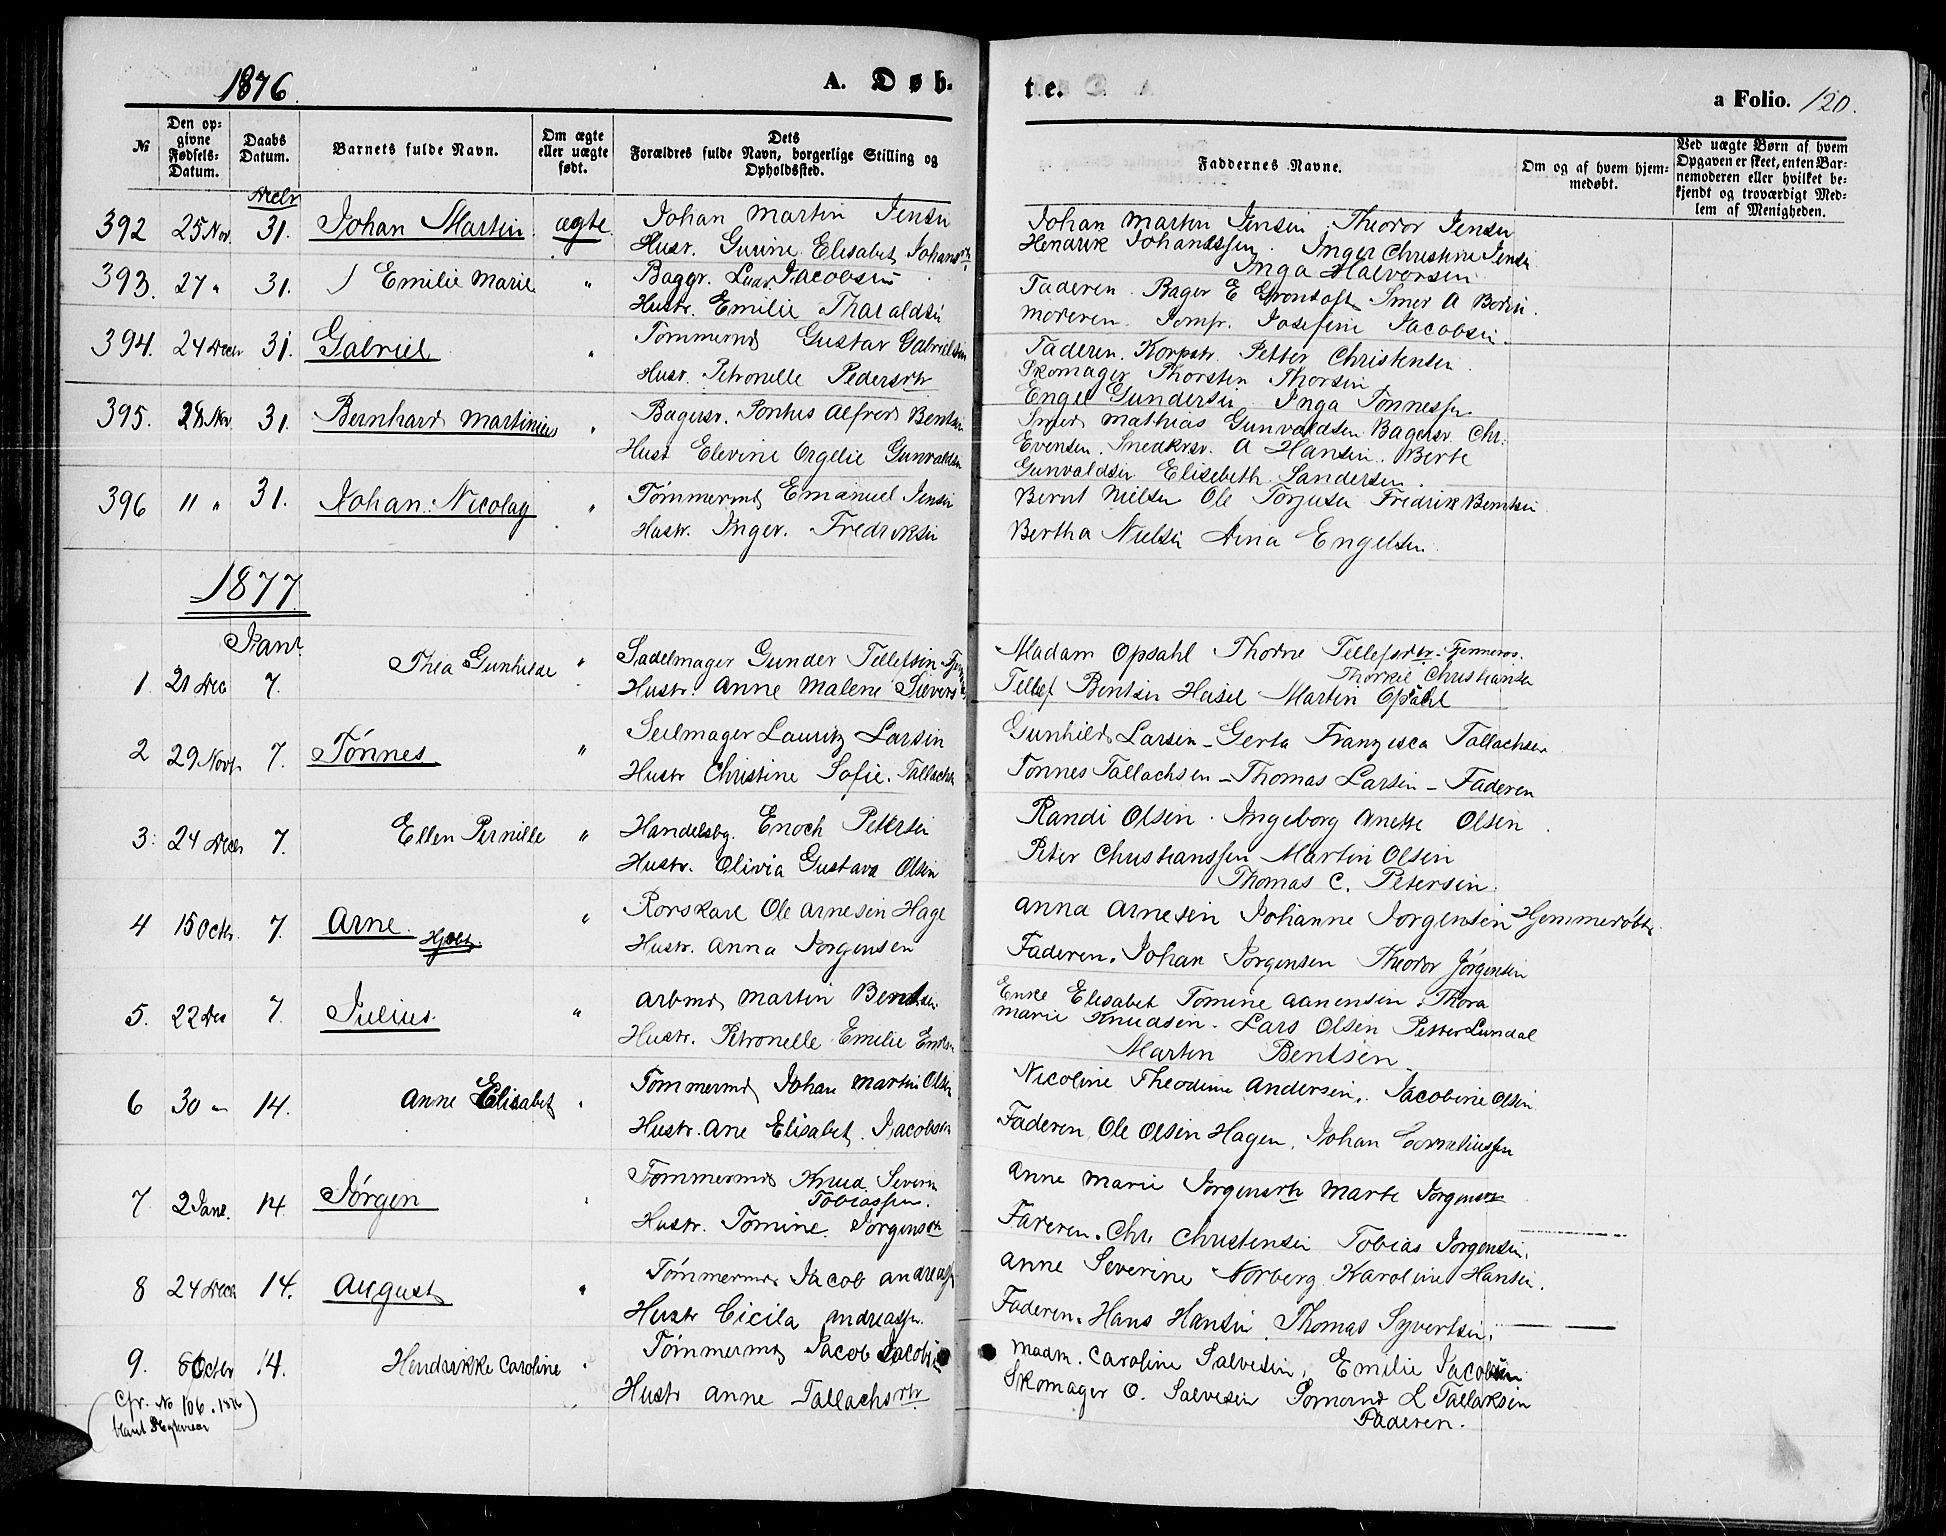 1876.
A. Døb-
te.
a Folio. 120.
№
Den opgivne Fødsels-Datum.
Daabs Datum.
Barnets fulde Navn.
Om ægte eller uægte født.
Dets Forældres fulde Navn, borgerlige Stilling og Opholdssted.
Faddernes Navne.
Om og af hvem hjemmedøbt.
Ved uægte Børn af hvem Opgaven er skeet, enten Barnemoderen eller hvilket bekjendt og troværdigt Medlem af Menigheden.
Decbr
392 25 Nov. 31. Johan Martin ægte Johan Martin Jensen
Hustr. Gurine Elisabet
Johan Martin Jensen Theodor Jensen
Hendrik Johanssen. Inger Christine Jensen
Inga Halvorsen
393. 27 " 31. Emilie Marie " Baggr. Jacobsen
Hustr. Emilie Tharaldsen
Faderen. Bager E Smed A
moderen. Jomfr. Josefine Jacobsen.
394. 24 Decbr 31. Gabriel " Tømmermd Gustav Gabrielsen
Hustr. Petronelle Pedersdtr
Faderen. Petter Christensen.
Skomager Thorsten Thorsen
Engel Gundersen Inga Tønnessen
395. 28 Nov. 31. Bernhard Martinius " Bagersv. Pontus Alfred Bentsen
Hust Elevine Orgelie Gunvaldsen
Smed Mathias Gunvaldsen Bagersv. Chr.
Evensen. Snedkrsv. A Hansen. Berte
Gunvaldsen Elisebeth Sandersen.
396 11 " 31. Johan Nicolay " Tømmermd Emanuel Jensen
Hustr. Inger. Fredriksen
Bernt Nielsen Ole Torjusen Fredrik Berntsen
Bertha Nielsen Dina Engelsen.
1877
Janr.
1. 21 Dec 7. Thea Gunhilde " Sadelmager Gunder Tellefsen
Hustr. Anne Malene Sievers
Madam Opsahl Thorne Tellefsdtr
Thorkil Christiansen
Tellef Bentsen Heisel Martin Opsahl
2 29 Novbr. 7. Tønnes " Seilmager Lauritz Larsen
Hustr Christine Sofie. Tallachsen
Gunhild Larsen - Gerta Franzisca Tallachsen
Tønnes Tallachsen - Thomas Larsen - Faderen
3. 24 Decbr 7. Ellen Pernille " Handelsbg. Enoch Petersen
Hustr. Olivia Gustava Olsen
Randi Olsen. Ingeborg Anette Olsen.
Peter Christianssen Martin Olsen
Thomas C. Petersen.
4 15 Octbr. 7. Arne. " Rorskarl Ole Arnesen Hage
Hjdbt. Hustr. Anna Jørgensen
Anna Arnesen Johanne Jørgensen Hjemmedøbt.
Faderen. Johan Jørgensen Theodor Jørgensen
5. 22 Dec 7. Julius. " Arbmd Martin Bentsen
Hustr. Petronelle Emilie
Enke Elisabet Tomine Aanensen. Thora
Marie Knudsen. Lars Olsen Petter Lundal
Martin Bentsen
6 30 " 14. Anne Elisabet " Tømmermd Johan Martin Olsen
Hustr. Ane Elisabet. Jacobsen
Nicoline Theodine Andersen. Jacobine Olsen
Faderen. Ole Olsen Hagen, Johan Corneliussen
7. 2 Jane. 14. Jørgen " Tømmermd Knud Severin
Tobiassen.
Hustr. Tomine. Jørgensdtr
Anne Marie Jørgensdtr Marte Jørgensen
Faderen. Chr. Christensen Tobias Jørgensen.
8 24 Decbr 14. August " Tømmermd Jacob Andreassen
Hustr Cicila Andreassen.
Anne Severine Norberg Karoline Hansen.
Faderen. Hans Hansen. Thomas Syvertsen.
9. 8 Octbr 14. Hendrikke Caroline " Tømmermd Jacob Jacobsen
Hustr Anne Tallachsdtr
Madm. Caroline Salvesen, Emilie Jacobsen
Skomager O. Salvesen L Tallaksen
Faderen.
(Cfr. No 106. 1876)